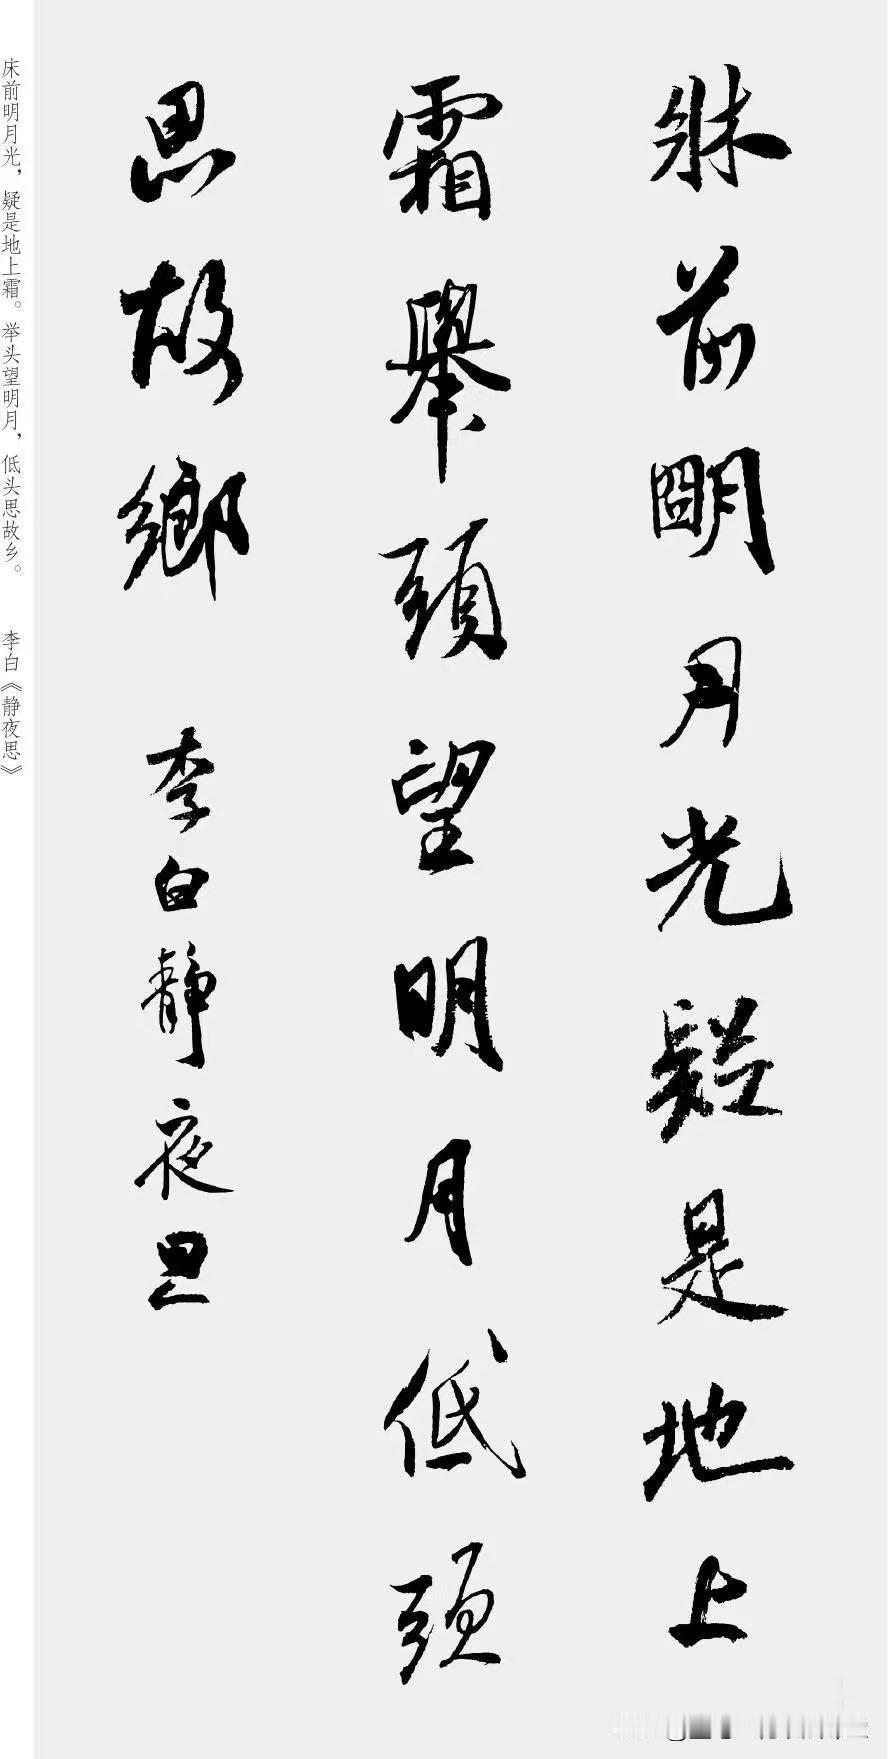 牀前明月光疑是地上
霜舉頭望明月低頭
思故鄉 李白靜夜思
床前明月光，疑是地上霜。举头望明月，低头思故乡。 李白《静夜思》